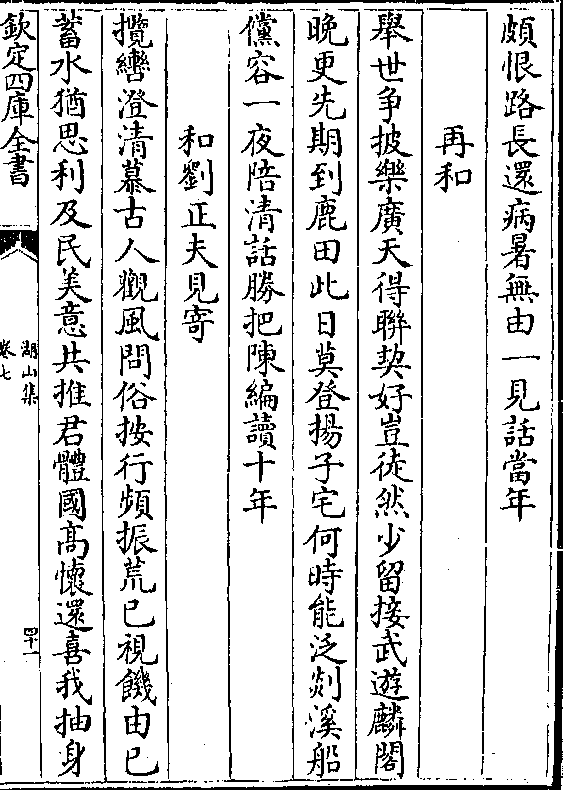 頗恨路長還病暑無由一見話當年
再和
舉世争披樂廣天得聯契好豈徒然少留接武遊麟閣
晩更先期到鹿田此日莫登揚子宅何時能泛剡溪船
儻容一夜陪清話勝把陳編讀十年
和劉正夫見寄
攬轡澄清慕古人觀風問俗按行頻振荒已視饑由已
蓄水猶思利及民美意共推君體國髙懷還喜我抽身
欽定四庫全書
湖山集
卷七
四十一